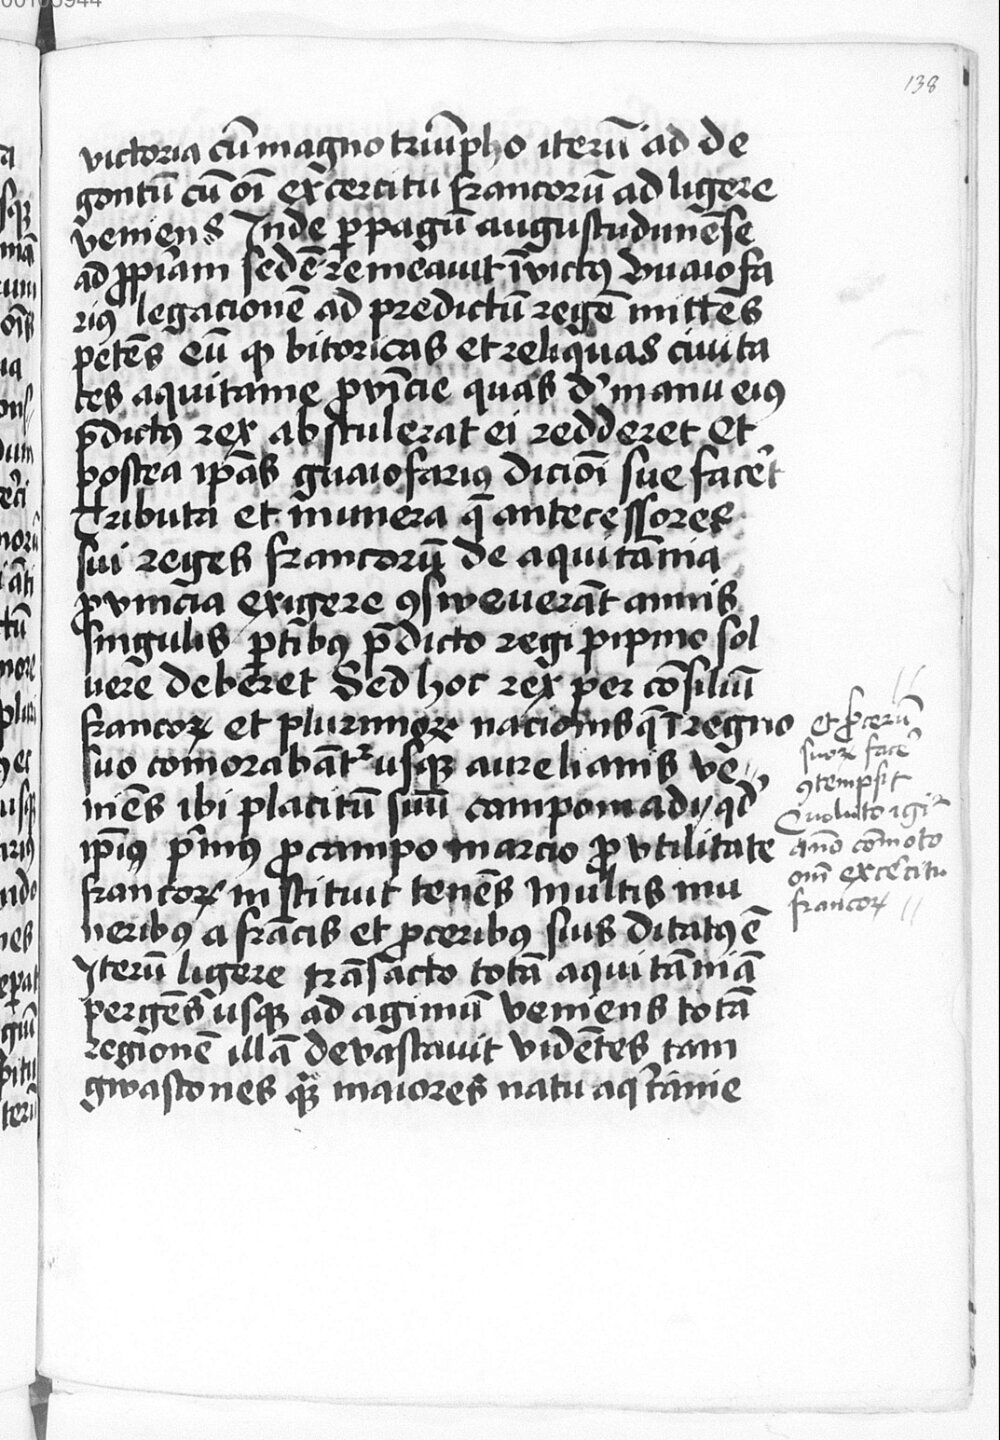 138
victoria cū magno triūpho iterū ad de
gontū cū oī exercitu francorū ad ligere
veniens Inde ꝑ pagū augustudunēse
ad ꝓpriam sedē remeavit īvictꝰ Vuaiofa
riꝰ legacionē ad predictū regē mittēs
petēs eū ꝙ bitoricas et reliquas civita
tes aquitanie ꝓvīcie quas d' manu eiꝰ
p̄dictꝰ rex abstulerat ei redderet Et
postea ip̄as guaiofariꝰ dicioī sue facēt
Tributa et munera q̄ antecessores
sui reges francorū de aquitania
ꝓvincia exigere ꝯsweverāt annis
singulis ꝑtibꝰ p̄dicto regi pipino sol
vere deberet Sed hoc rex per cōsiliū
francoꝝ et plurimoꝝ nacionis q̄ ī regno
suo comorabāt᷑ usqꝫ aurelianis ve //
niēs ibi placitū suū campo madij qd'
ip̄iꝰ p̄mꝰ ꝓ campo marcio ꝓ utilitate
francoꝝ instituit tenēs multis mu
neribꝰ a frācis et ꝓceribꝰ suis ditatꝰ ē
Iterū ligere trāsacto totā aquitaniā
pergēs usqꝫ ad aginnū veniens totā
regionē illā devastavit vidētes tam
gwascones qꝫ maiores natu aq'tanie
//
et ꝓcerū
suoꝝ facē
ꝯtempsit
Evoluto igi᷑
anō cōmoto
om̄ exercitu
francoꝝ //